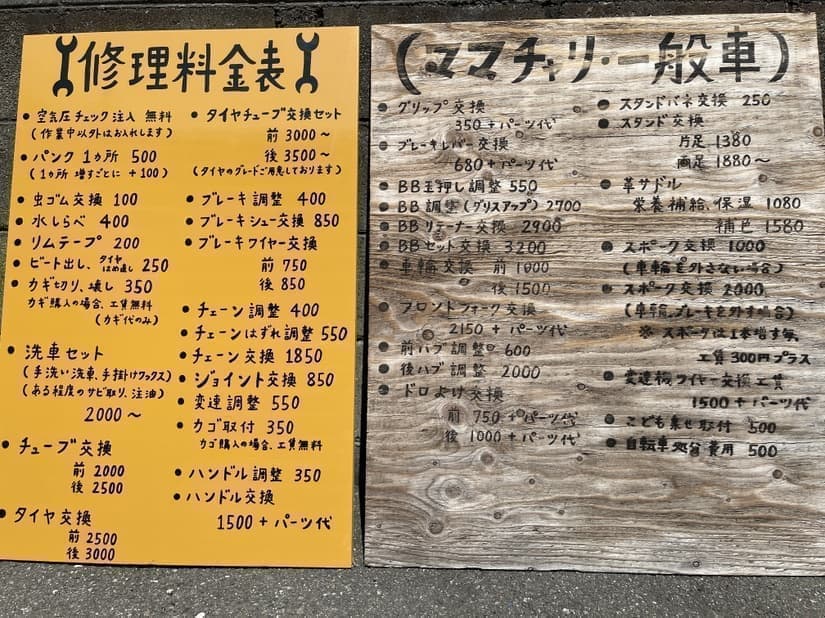 修理料金表
• 空気圧チェック注入 無料
(作業中以外はお入れします)
• パンク 1ヵ所 500
(1ヵ所 増すごとに +100)
• 虫ゴム交換 100
• 水しらべ 400
• リムテープ 200
• ビート出し、タイヤはめ直し 250
• カギ切り、壊し 350
カギ購入の場合、工賃無料
(カギ代のみ)
• 洗車セット
(手洗い洗車、手掛けワックス)
(ある程度のサビ取り、注油)
2000〜
• チューブ交換
前 2000
後 2500
• タイヤ交換
前 2500
後 3000
• タイヤチューブ交換セット
前 3000〜
後 3500〜
(タイヤのグレードご用意しております)
• ブレーキ調整 400
• ブレーキシュー交換 850
• ブレーキワイヤー交換
前 750
後 850
• チェーン調整 400
• チェーンはずれ調整 550
• チェーン交換 1850
• ジョイント交換 850
• 変速調整 550
• カゴ取付 350
カゴ購入の場合、工賃無料
• ハンドル調整 350
• ハンドル交換
1500 + パーツ代
(ママチャリ・一般車)
• グリップ交換
350 + パーツ代
• ブレーキレバー交換
680 + パーツ代
• BB玉押し調整 550
• BB調整(グリスアップ) 2700
• BBリテーナー交換 2900
• BBセット交換 3200
• 車輪交換 前 1000
後 1500
• フロントフォーク交換
2150 + パーツ代
• 前ハブ調整 600
• 後ハブ調整 2000
• ドロよけ交換
前 750 + パーツ代
後 1000 + パーツ代
• スタンドバネ交換 250
• スタンド交換
片足 1380
両足 1880〜
• 革サドル
栄養補給、保湿 1080
補色 1580
• スポーク交換 1000
(車輪を外さない場合)
• スポーク交換 2000
(車輪、ブレーキを外す場合)
※ スポークは1本増す毎
工賃300円プラス
• 変速機ワイヤー交換工賃
1500 + パーツ代
• こども乗せ取付 500
• 自転車処分費用 500